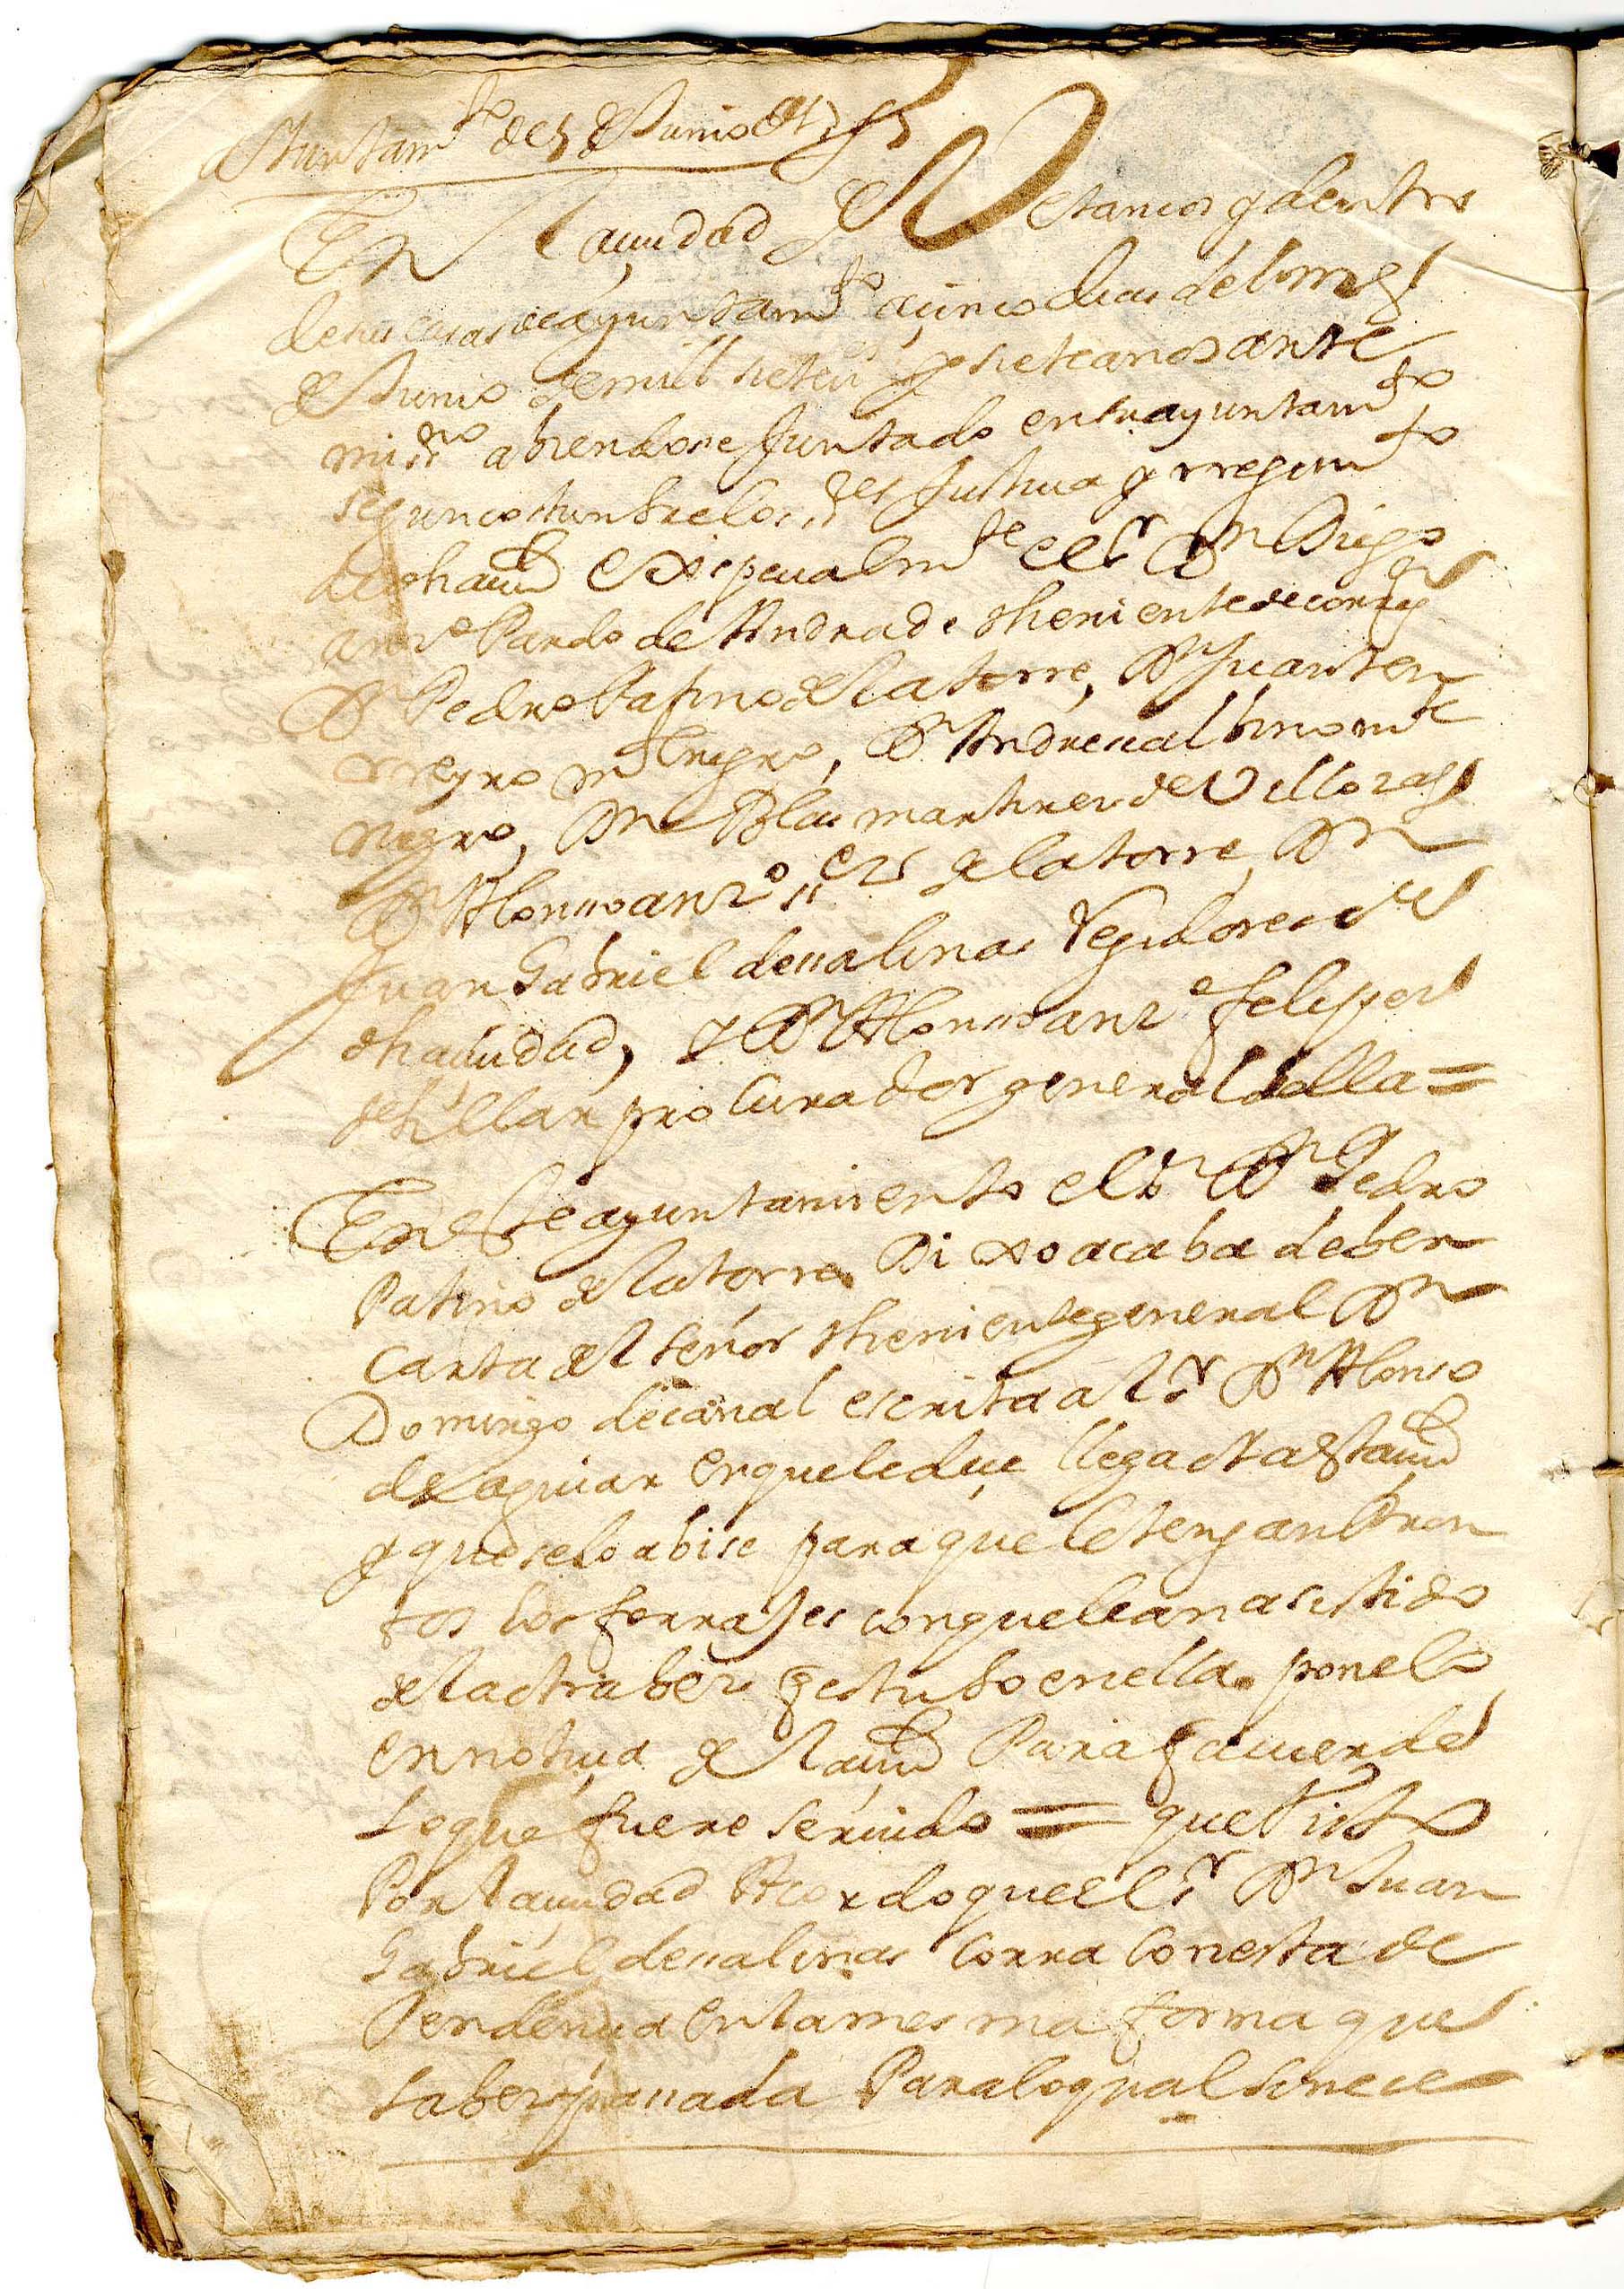 Ayuntamto de 5 de Junio de 1707
En la ciudad de Vetanços y dentro
de sus casas de ayuntamto a çinco dias del mes
de Junio de mill setecis y siete anos ante
mi ssno abiendose Juntado en su ayuntamto
segun costunbre los ssres Justicia y rregimto
de dha ciud Expecialmte el sr Dn Diego
anto Pardo de Andrade theniente de correxor
Dn Pedro Patino de la torre, Dn Juan ten
rreyro mtenegro, Dn Andres balbino mte
negro, Dn Blas martinez de Villozas
Dn Alonsso anto ssez de la torre, Dn
Juan Gabriel de ssalinas Regidores de
dha ciudad, y Dn Alonsso anto felipez
de Villar procurador general della =
En este ayuntamiento el sr Dn Pedro
Patino de la torre Dixo acaba de ber
carta del señor theniente general Dn
Domingo de canal escrita al sr Dn Alonso
de aguiar en que le diçe llega oy a esta ciud
y que se lo abise para que le tengan Pron
tos los forraJes con que le an asistido
de la otra bez q estubo en ella. ponelo
en notiçia de la ciud Para q acuerde
lo que fuere seruido = que Visto
Por la ciudad Acordo que el sr Dn Juan
Gabriel de ssalinas Corra Con esta de
Pendençia en la mesma forma que
la bez passada Para lo qual si nece